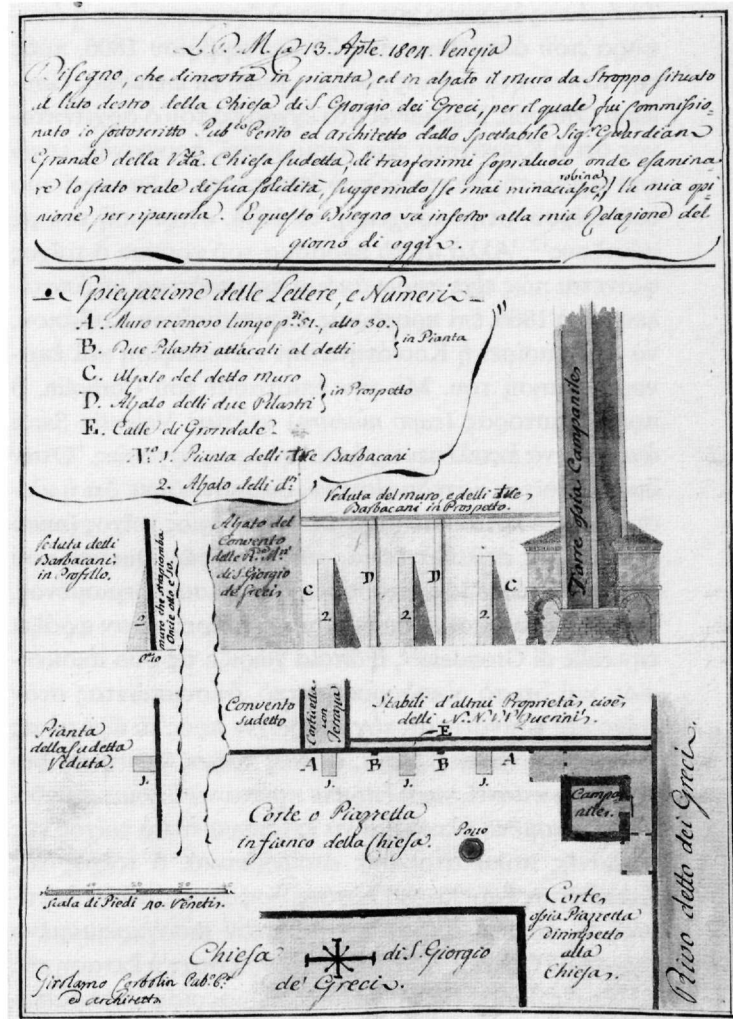 L. D. M. a 13. Aple. 1804. Venezia
Disegno, che dimostra in pianta, ed in alzato il muro da Stroppo situato
al lato destro della Chiesa di S. Giorgio dei Greci, per il quale fui commissio-
nato io sottoscritto Pub.co Perito ed Architetto dallo Spettabile Sig.r Guardian
Grande della Chiesa sudetta, di trasferirmi sopraluoco onde esamina-
re lo stato reale di sua solidità, suggerindo se mai minaciasse robina, la mia opi-
nione per ripararla. E questo Disegno va inserto alla mia Relazione del
giorno di oggi.
Spiegazione delle Lettere, e Numeri
A. Muro rovinoso lungo p.di 51. alto 30.
B. Due Pilastri attacati al detto
in Pianta
C. Alzato del detto muro
D. Alzato delli due Pilastri
in Prospetto
E. Calle di Girridale
N.o 1. Pianta delli tre Barbacani
2. Alzato delli d.ti
Veduta del muro, e delli tre
Barbacani in Prospetto.
Torre ossia Campanile
Veduta delli
Barbacani
in Profillo.
muro che strapiomba
Oncie otto e 10.
Alzato del
Convento
delle R.de M.ri
di S. Giorgio
de Greci
C D D C
2. 2. 2.
2
O.e 10
Pianta
della sudetta
Veduta.
1.
Convento
sudetto
Cortivella
con
Terrazo
Stabili d'altrui Proprietà, cioè
delli N. N. V. V. Querini.
E
A B B A
1. 1. 1.
Campa-
nile.
Corte o Piazzetta
in fianco della Chiesa.
Pozzo
Scala di Piedi 40. Veneti.
Corte,
ossia Piazzetta
dirimpetto
alla
Chiesa.
Rivo detto dei Greci.
Chiesa di S. Giorgio
de' Greci.
Girolamo Corbolin Pub.o P.to
ed architetto